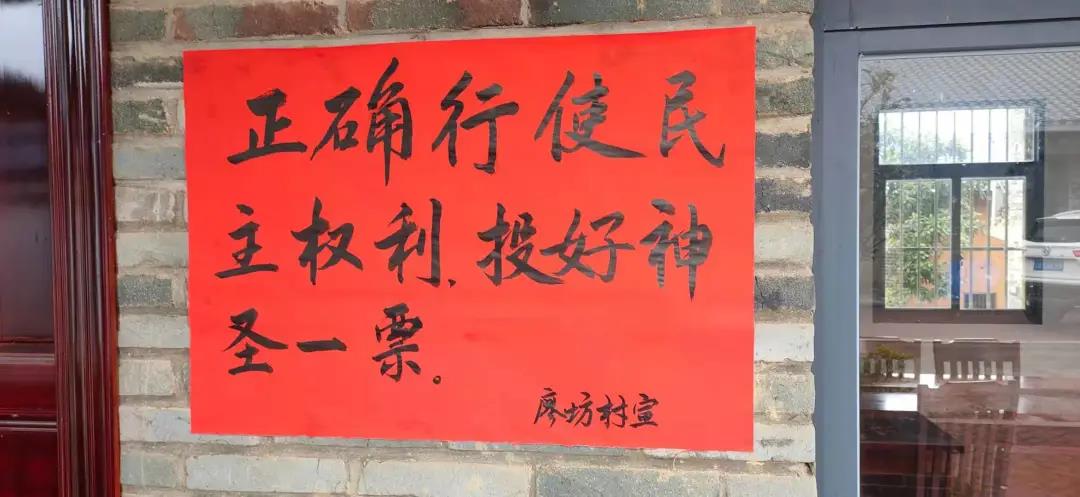 正确行使民
主权利、投好神
圣一票。
廖坊村宣